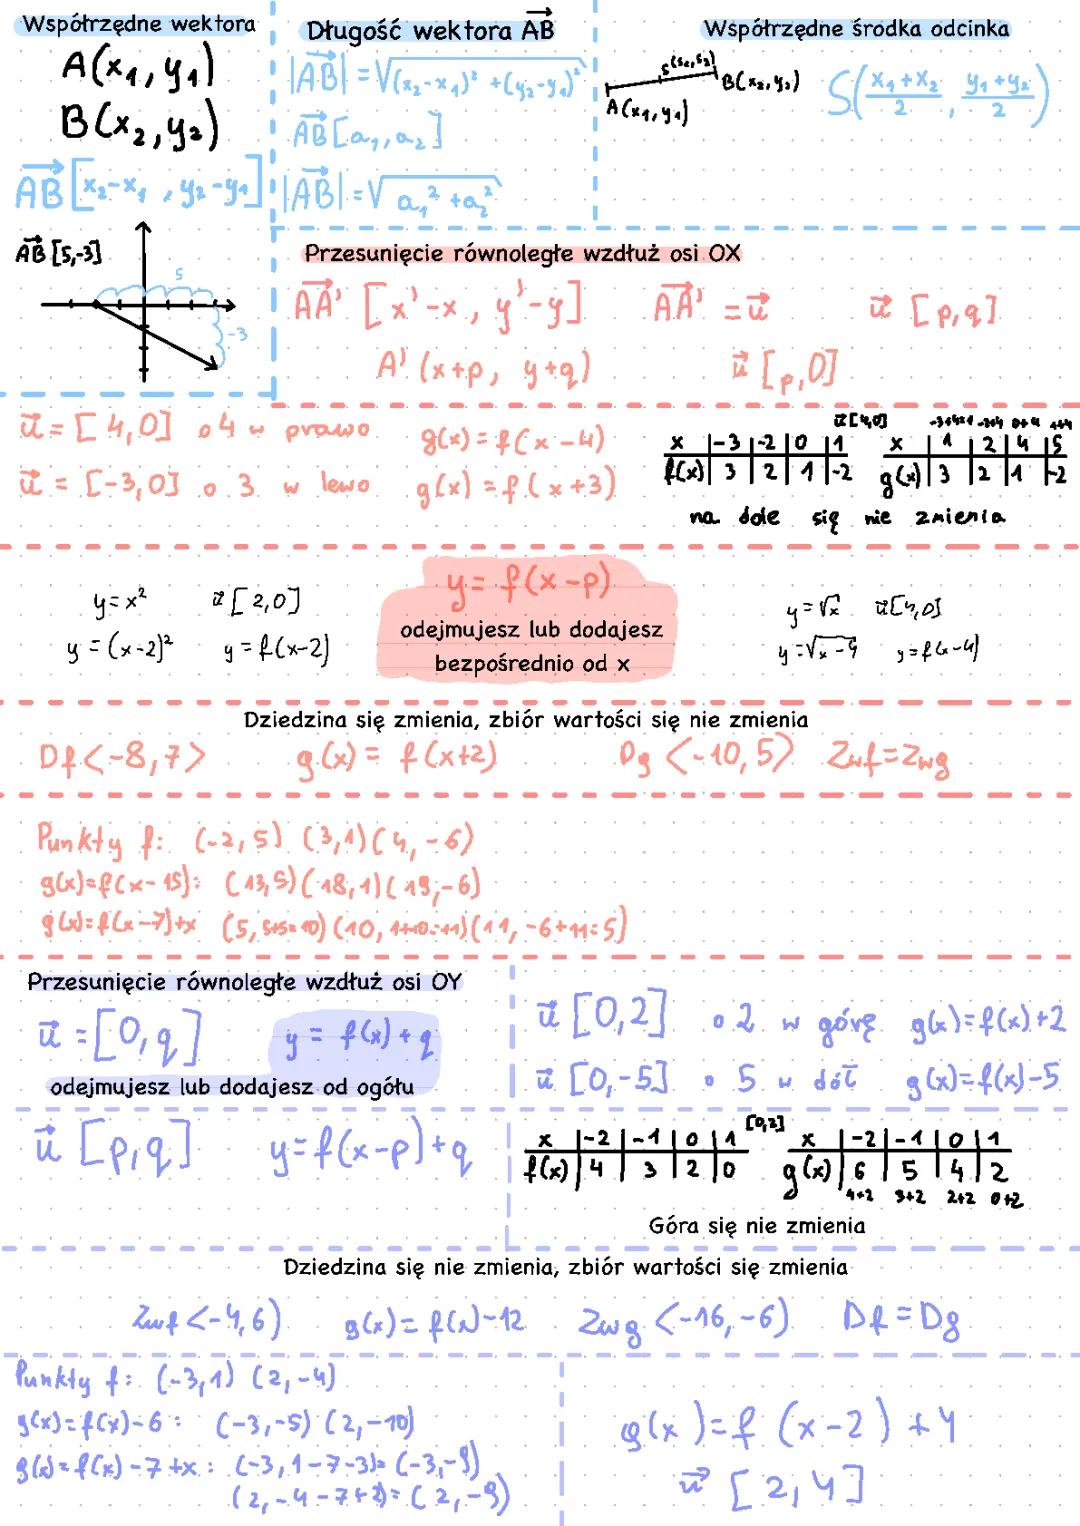 Współrzędne wektora
A(x₁, y₁)
B(x₂, y₂)
AB→ [x₂-x₁, y₂-y₁]
AB→ [5,-3]
5
-3
Długość wektora AB→
|AB→| = √(x₂-x₁)² + (y₂-y₁)²
AB→ [a₁, a₂]
|AB→| = √a₁² + a₂²
Współrzędne środka odcinka
A(x₁, y₁)
B(x₂, y₂)
S((x₁+x₂)/2, (y₁+y₂)/2)
Przesunięcie równoległe wzdłuż osi OX
AA'→ [x'-x, y'-y] AA'→ = u→ u→ [p,q]
A' (x+p, y+q) u→ [p,0]
u→ = [4,0] o 4 w prawo g(x) = f(x-4)
u→ = [-3,0] o 3 w lewo g(x) = f(x+3)
u→[4,0] -3+4=1 -2+4 0+4 1+4
x | -3 | -2 | 0 | 1
f(x) | 3 | 2 | 1 | -2
x | 1 | 2 | 4 | 5
g(x) | 3 | 2 | 1 | -2
na dole się nie zmienia
y = x² u→ [2,0]
y = (x-2)² y = f(x-2)
y = f(x-p)
odejmujesz lub dodajesz
bezpośrednio od x
y = √x u→[4,0]
y = √x-4 y = f(x-4)
Dziedzina się zmienia, zbiór wartości się nie zmienia
Df <-8,7> g(x) = f(x+2) Dg <-10,5> Zwf = Zwg
Punkty f: (-2,5) (3,1) (4,-6)
g(x)=f(x-15): (13,5) (18,1) (19,-6)
g(x)=f(x-7)+x (5, 5+5=10) (10, 1+10=11) (11, -6+11=5)
Przesunięcie równoległe wzdłuż osi OY
u→ = [0,q] y = f(x) + q
odejmujesz lub dodajesz od ogółu
u→ [0,2] o 2 w górę g(x)=f(x)+2
u→ [0,-5] o 5 w dół g(x)=f(x)-5
u→ [p,q] y=f(x-p)+q
[0,2]
x | -2 | -1 | 0 | 1
f(x) | 4 | 3 | 2 | 0
x | -2 | -1 | 0 | 1
g(x) | 6 | 5 | 4 | 2
4+2 3+2 2+2 0+2
Góra się nie zmienia
Dziedzina się nie zmienia, zbiór wartości się zmienia
Zwf <-4,6) g(x) = f(x)-12 Zwg <-16,-6) Df = Dg
Punkty f: (-3,1) (2,-4)
g(x) = f(x)-6 : (-3,-5) (2,-10)
g(x) = f(x) -7 +x : (-3, 1-7-3)= (-3,-9)
(2, -4-7+2)= (2,-9)
g(x)=f (x-2) + 4
u→ [2,4]